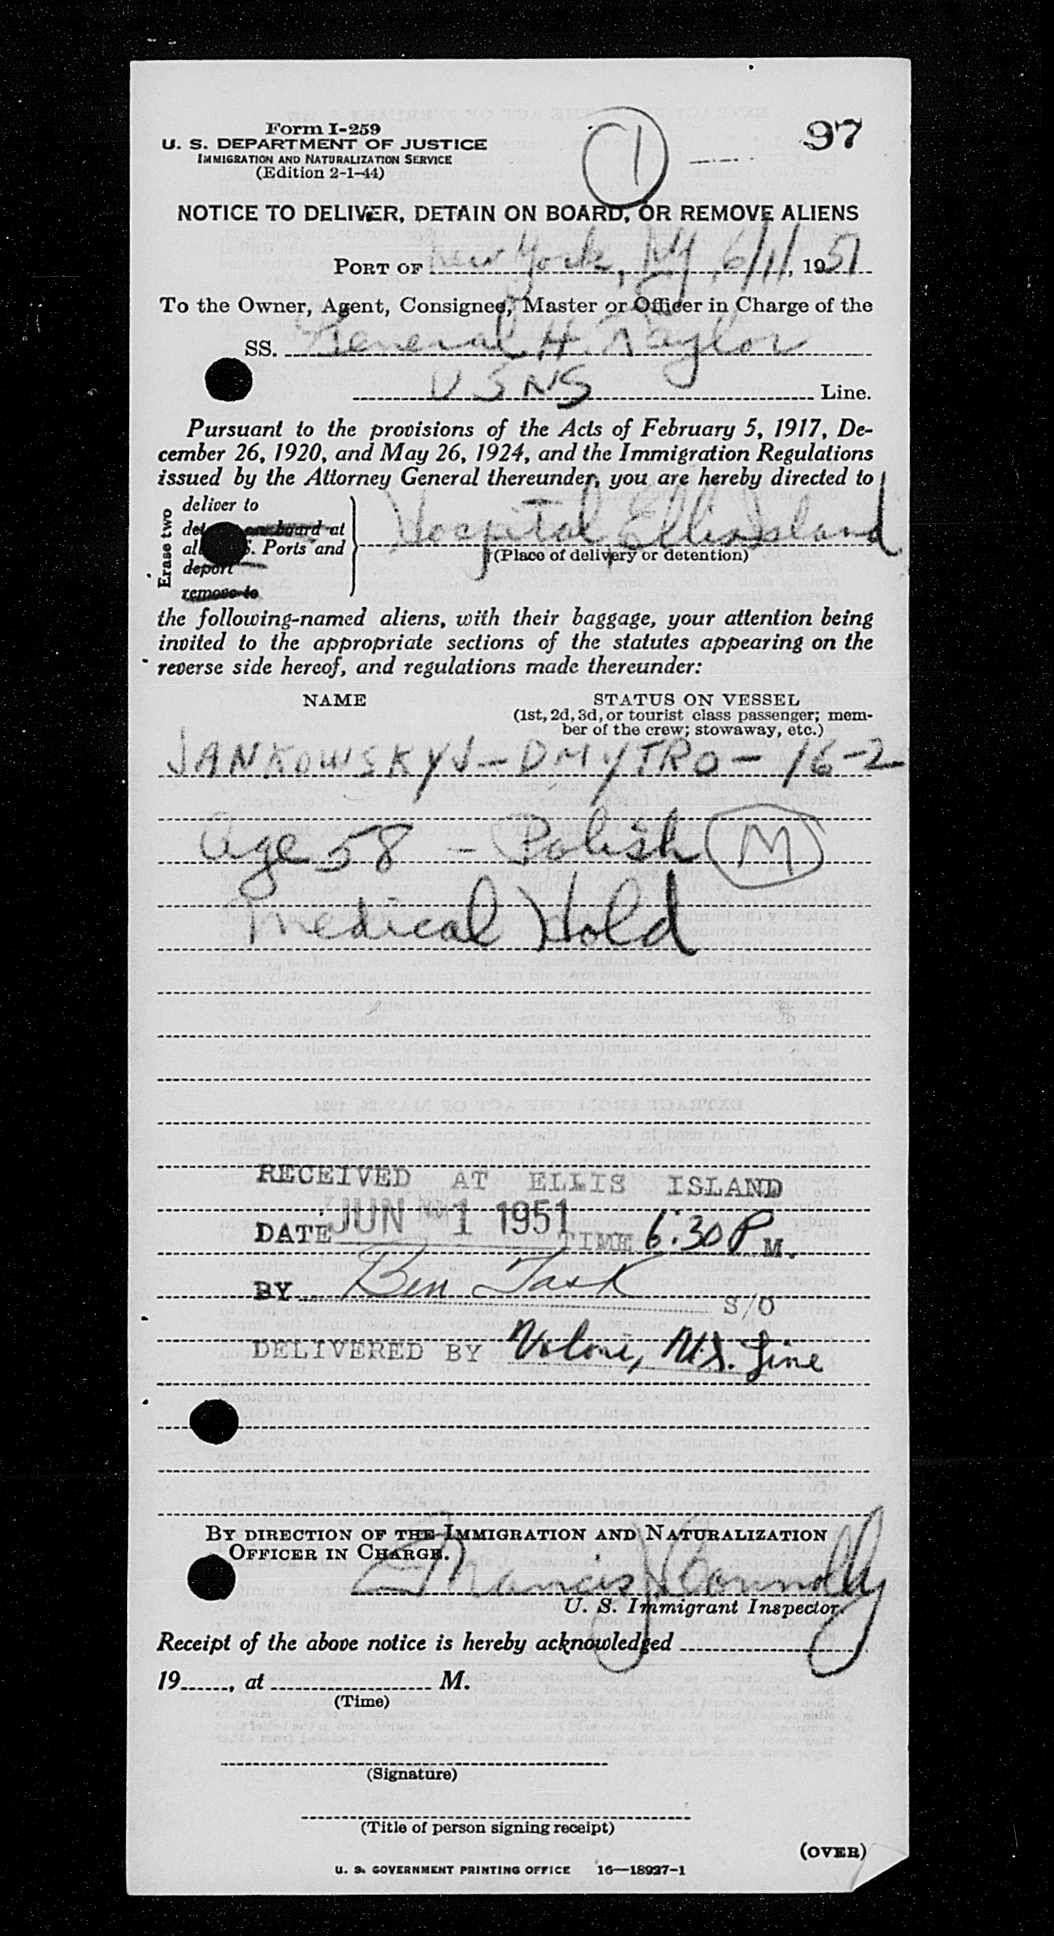 Form I-259
U. S. DEPARTMENT OF JUSTICE
IMMIGRATION AND NATURALIZATION SERVICE
(Edition 2-1-44)
1
97
NOTICE TO DELIVER, DETAIN ON BOARD, OR REMOVE ALIENS
PORT OF New York, NY, 6/1/, 1951
To the Owner, Agent, Consignee, Master or Officer in Charge of the
SS. General H. Taylor
USNS Line.
Pursuant to the provisions of the Acts of February 5, 1917, De-
cember 26, 1920, and May 26, 1924, and the Immigration Regulations
issued by the Attorney General thereunder, you are hereby directed to
Erase two
deliver to
on board at
Ports and
deport
remove to
Hospital Ellis Island
(Place of delivery or detention)
the following-named aliens, with their baggage, your attention being
invited to the appropriate sections of the statutes appearing on the
reverse side hereof, and regulations made thereunder:
NAME
STATUS ON VESSEL
(1st, 2d, 3d, or tourist class passenger; mem-
ber of the crew; stowaway, etc.)
JANKOWSKYJ - DMYTRO - 16-2
Age 58 - Polish M
Medical Hold
RECEIVED AT ELLIS ISLAND
DATE JUN 1 1951 TIME 6:30 P M.
BY Ben Task S/O
DELIVERED BY Line
BY DIRECTION OF THE IMMIGRATION AND NATURALIZATION
OFFICER IN CHARGE.
Francis J Connolly
U. S. Immigrant Inspector.
Receipt of the above notice is hereby acknowledged
19, at M.
(Time)
(Signature)
(Title of person signing receipt)
(OVER)
U. S. GOVERNMENT PRINTING OFFICE 16—18927-1